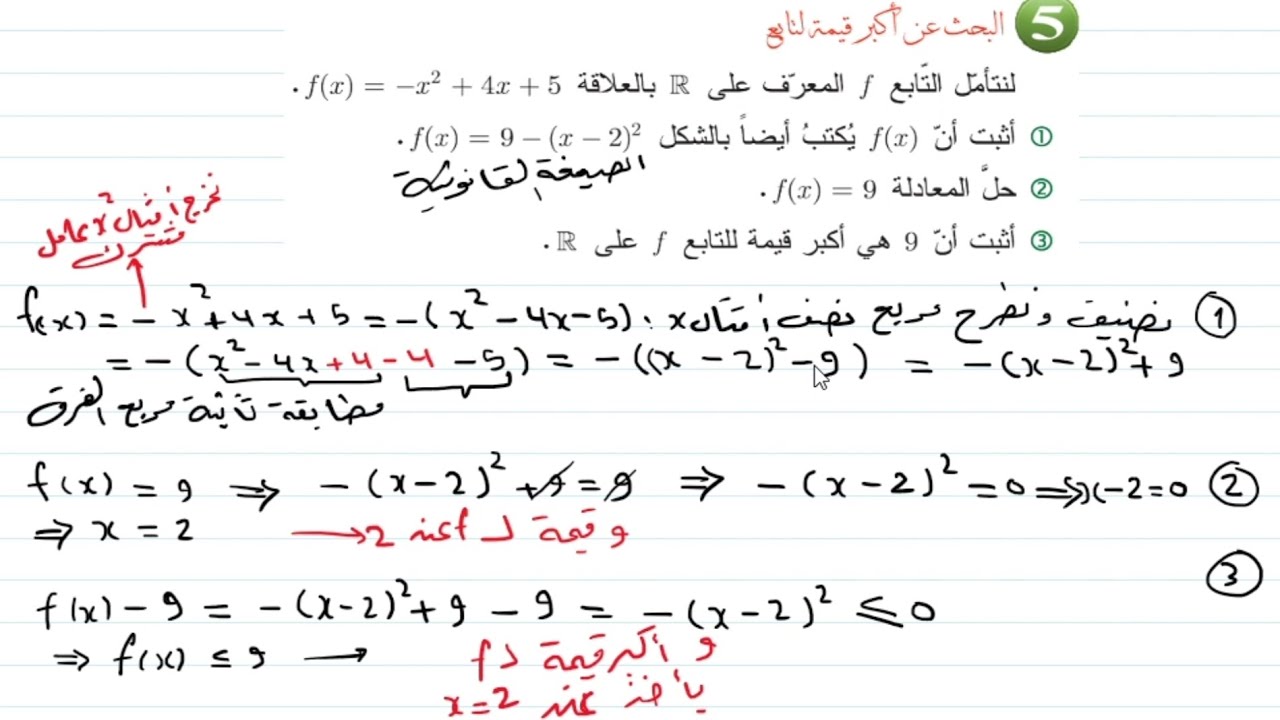 5 البحث عن أكبر قيمة لتابع
لنتأمّل التّابع f المعرّف على ℝ بالعلاقة f(x) = −x² + 4x + 5 .
① أثبت أنّ f(x) يُكتبُ أيضاً بالشكل f(x) = 9 − (x − 2)² .
الصيغة القانونية
② حلَّ المعادلة f(x) = 9 .
③ أثبت أنّ 9 هي أكبر قيمة للتابع f على ℝ .
نخرج أمثال x² عامل
مشترك
① نضيف ونطرح مربع نصف أمثال x . f(x) = − x² + 4x + 5 = −(x² − 4x − 5)
= − (x² − 4x + 4 − 4 − 5) = − ((x − 2)² − 9) = −(x − 2)² + 9
مطابقة تانية مربع الفرق
② f(x) = 9 ⇒ − (x − 2)² + 9 = 9 ⇒ − (x − 2)² = 0 ⇒ x − 2 = 0
⇒ x = 2 → 2 عند f و قيمة لـ
③
f(x) − 9 = −(x − 2)² + 9 − 9 = −(x − 2)² ≤ 0
⇒ f(x) ≤ 9 → و أكبر قيمة لـ f
يأخذ عند x = 2